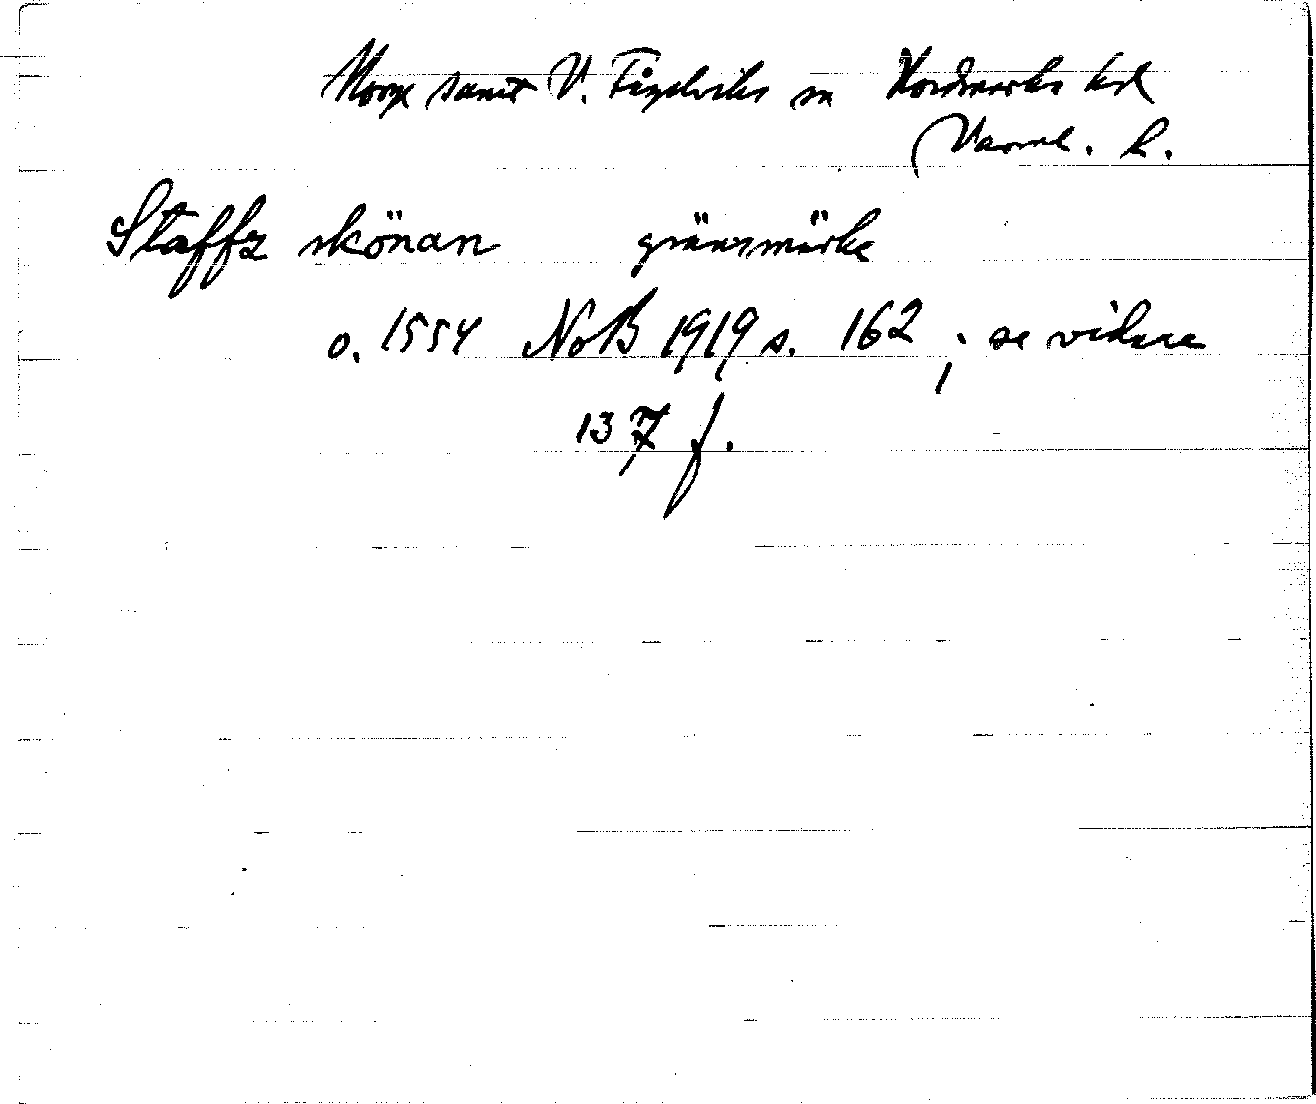 Norge samt V. Fågelviks sn Nordmarks hd
Värml. l.
Staffz skönan gränsmärke
o. 1554 NoB 1919 s. 162 ; se vidare
137 f.